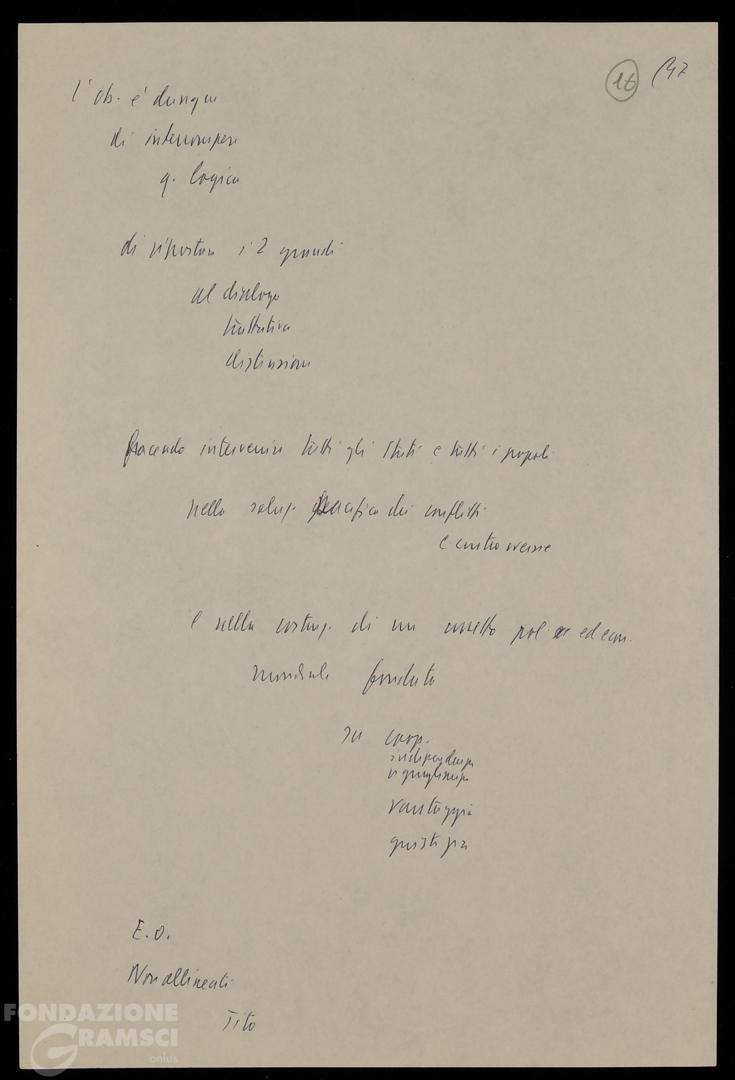 16 147
l'ob. è dunque
di interrompere
q. logica
di riportare i 2 grandi
al dialogo
trattativa
distensione
facendo intervenire tutti gli Stati e tutti i popoli
nella soluz. pacifica dei conflitti
e controversie
e nella costruz. di un assetto pol. ed econ.
mondiale fondato
su coop.
indipendenza
uguaglianza
vantaggio
giustizia
E.O.
Non allineati
Tito
FONDAZIONE
GRAMSCI
onlus